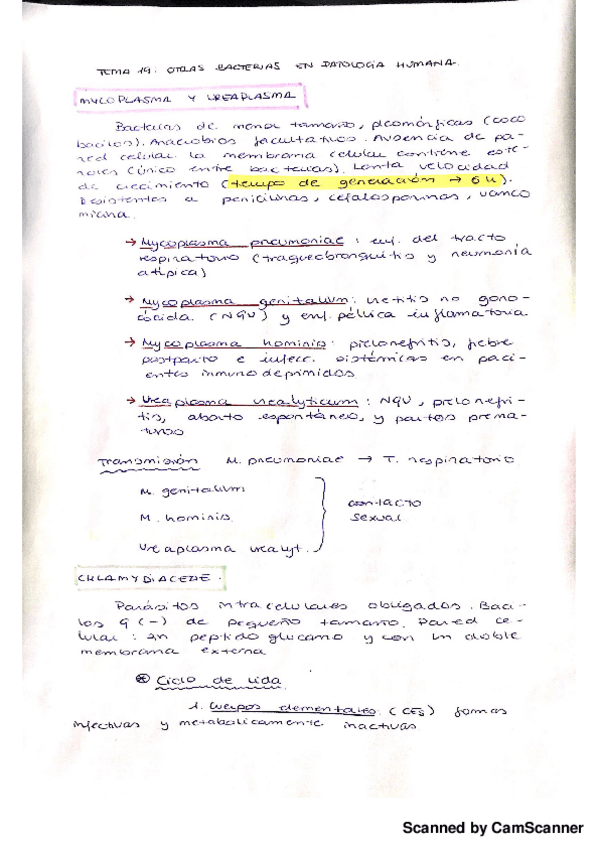 TEMA 19: OTRAS BACTERIAS EN PATOLOGÍA HUMANA.
MYCOPLASMA Y UREAPLASMA
Bacterias de menor tamaño, pleomórficas (coco
bacilos). Anaerobios facultativos. Ausencia de pa-
red celular. La membrana celular contiene este-
roles (único entre bacterias). Lenta velocidad
de crecimiento (tiempo de generación → 6 h).
Resistentes a penicilinas, cefalosporinas, vanco
micina.
→ Mycoplasma pneumoniae: enf. del tracto
respiratorio (traqueobronquitis y neumonía
atípica)
→ Mycoplasma genitalium: uretitis no gono-
cócida. (NGU) y enf. pélvica inflamatoria
→ Mycoplasma hominis: pielonefritis, fiebre
postparto e infecc. sistémicas en paci-
entes inmunodeprimidos
→ Ureaplasma urealyticum: NGU, pielonefri-
tis, aborto espontáneo, y partos prema-
turos
Transmisión M. pneumoniae → T. respiratorio
M. genitalium
M. hominis.
Ureaplasma urealyt.
contacto
sexual
CHLAMYDIACEAE.
Parásitos intracelulares obligados. Baci-
los G (-) de pequeño tamaño. Pared ce-
lular: sin peptidoglucano y con un doble
membrana externa
* Ciclo de vida
1. Cuerpos elementales: (CEs) formas
infectivas y metabólicamente inactivas
Scanned by CamScanner